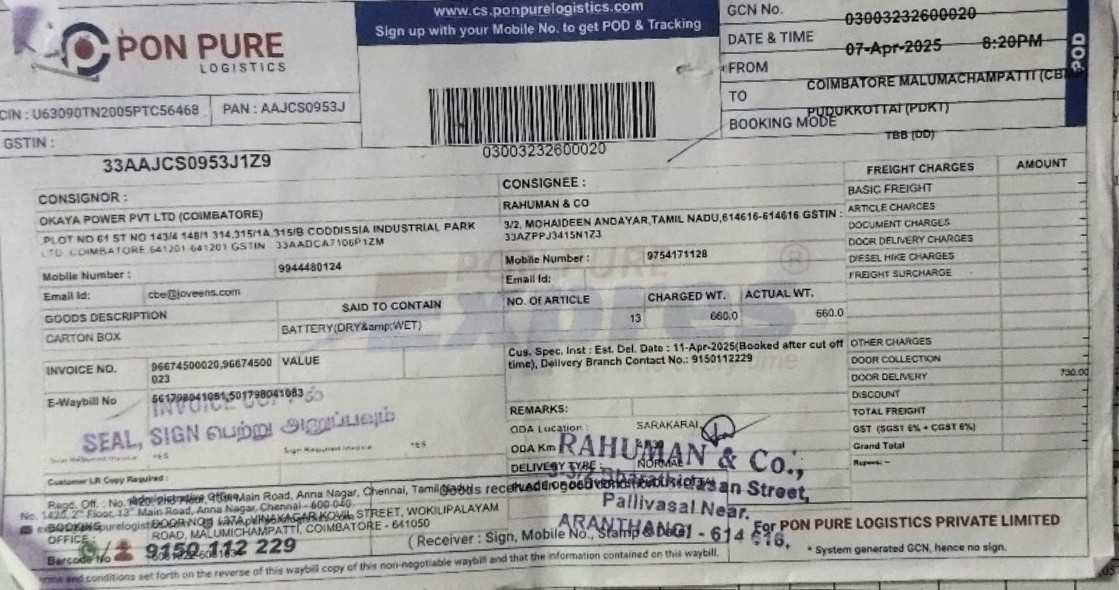 PON PURE
LOGISTICS
www.cs.ponpurelogistics.com
Sign up with your Mobile No. to get POD & Tracking
GCN No. 03003232600020
DATE & TIME 07-Apr-2025 8:20PM
FROM COIMBATORE MALUMACHAMPATTI
TO PUDUKKOTTAI (PDKT)
BOOKING MODE TBB (DD)
POD
CIN : U63090TN2005PTC56468 PAN : AAJCS0953J
GSTIN :
33AAJCS0953J1Z9
03003232600020
CONSIGNOR :
OKAYA POWER PVT LTD (COIMBATORE)
PLOT NO 61 ST NO 143/4 148/1 314,315/1A,315/B CODDISSIA INDUSTRIAL PARK
LTD. COIMBATORE 641201-641201 GSTIN 33AADCA7106P1ZM
Mobile Number : 9944480124
Email Id: cbe@joveens.com
GOODS DESCRIPTION SAID TO CONTAIN
CARTON BOX BATTERY(DRY&amp;WET)
INVOICE NO. 96674500020,96674500
023
VALUE
E-Waybill No 561798041081,501798041083
INVOICE COPY ல்
SEAL, SIGN பெற்று அனுப்பவும்
YES YES
Customer LR Copy Required :
CONSIGNEE :
RAHUMAN & CO
3/2, MOHAIDEEN ANDAYAR,TAMIL NADU,614616-614616 GSTIN :
33AZPPJ3415N1Z3
Mobile Number : 9754171128
Email Id:
PON PURE
Express ®
NO. Of ARTICLE CHARGED WT. ACTUAL WT.
13 660.0 660.0
Cus. Spec. Inst : Est. Del. Date : 11-Apr-2025(Booked after cut off
time), Delivery Branch Contact No.: 9150112229
REMARKS:
ODA Location : SARAKARAI
ODA Km
DELIVERY TYPE : NORMAL
RAHUMAN & Co.,
Street,
Pallivasal Near.
ARANTHANGI - 614 616.
FREIGHT CHARGES AMOUNT
BASIC FREIGHT
ARTICLE CHARGES
DOCUMENT CHARGES
DOOR DELIVERY CHARGES
DIESEL HIKE CHARGES
FREIGHT SURCHARGE
OTHER CHARGES
DOOR COLLECTION
DOOR DELIVERY 730.00
DISCOUNT
TOTAL FREIGHT
GST (SGST 6% + CGST 6%)
Grand Total
Rupees: –
Regd. Off. : Main Road, Anna Nagar, Chennai, Tamil Nadu
Main Road, Anna Nagar, Chennai - 600 040.
BOOKING
OFFICE :
STREET, WOKILIPALAYAM
ROAD, MALUMICHAMPATTI, COIMBATORE - 641050
Barcode No
9150 112 229
( Receiver : Sign, Mobile No., Stamp & Date)
For PON PURE LOGISTICS PRIVATE LIMITED
* System generated GCN, hence no sign.
and conditions set forth on the reverse of this waybill copy of this non-negotiable waybill and that the information contained on this waybill.